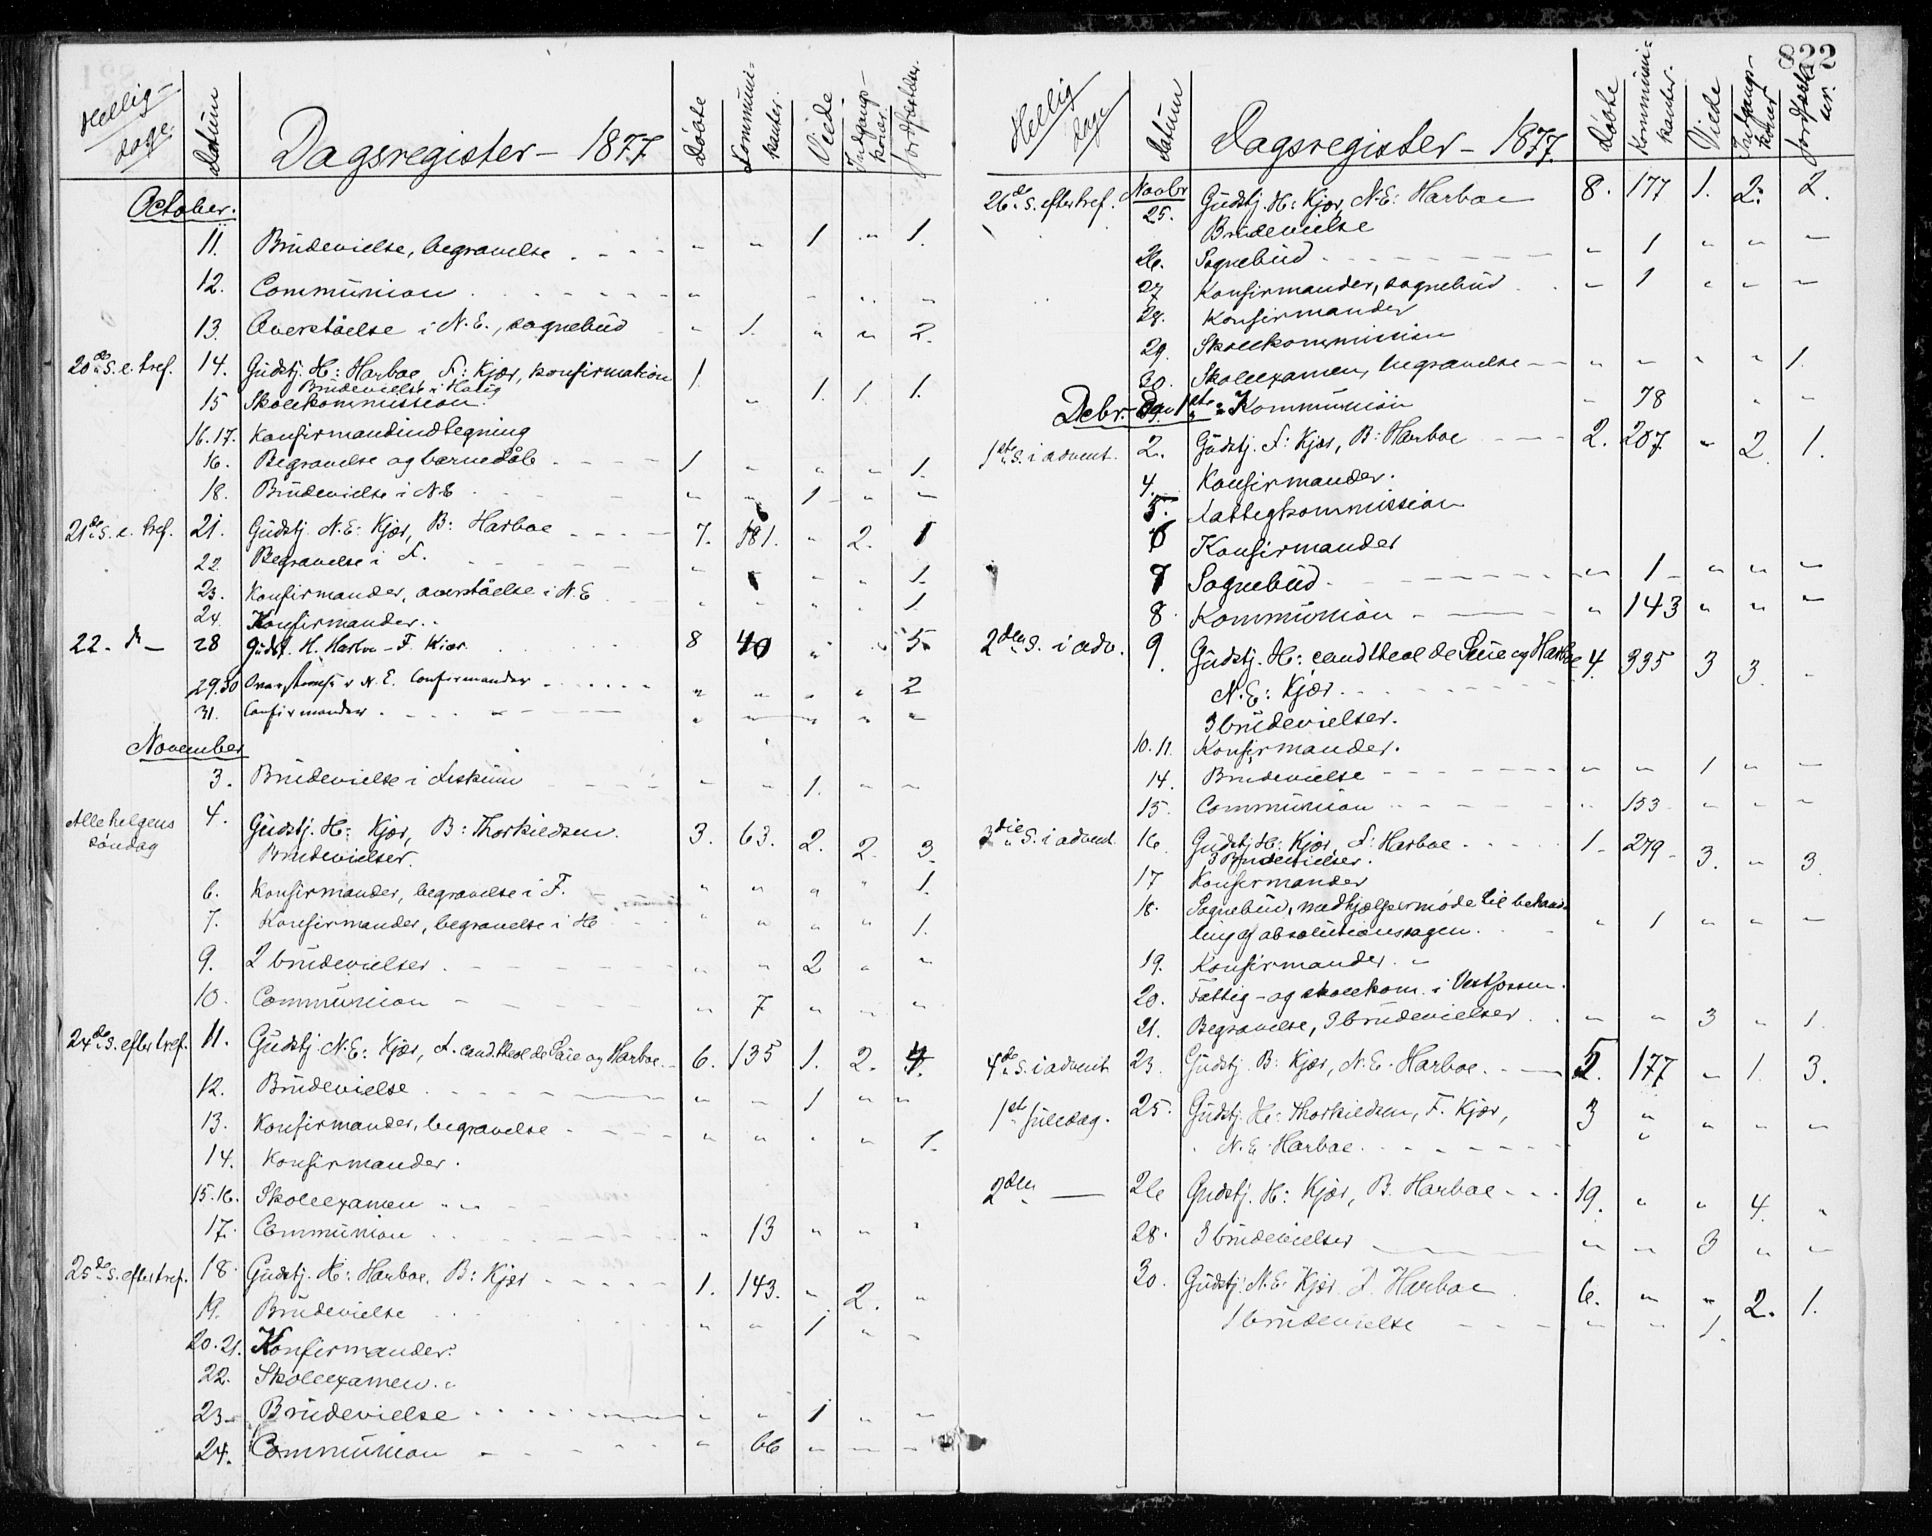 822
Hellig-
dage
Datum
Dagsregister - 1877
Döbte
Kommuni-
kanter.
Viede
Indgangs-
koner
Jordfæstelser.
October.
11. Brüdevielse, begravelse . . . . " " 1 " 1.
12. Communion . . . . . " " " " "
13. Overståelse i N.E., sognebüd " 1. " " 2.
20de S. e. tref. 14. Güdstj. H: Harboe, F: Kjær, konfirmation 1. " 1. 1. 1.
Brüdevielse i Hølig
15 Skolekommission.
16.17. Konfirmandindtegning
16. Begravelse og barnedåb . . . . 1 " " " 1.
18. Brüdevielse i N.E " " 1 " "
21de S. e. tref. 21. Güdstj. N.E: Kjær, B: Harboe . . . . 7. 181. " 2. 1
22. Begravelse i F. " " " 1.
23. Konfirmander, overståelse i N.E " " " " 1.
24. Konfirmander. "
22. d - 28 Güdst. H. Harboe - F. Kiær 8 40 " " 5
29.30 Overståelse i N.E. Confirmander . . . . " " " " 2
31. Confirmander . . . . " " " " "
November
3. Brüdevielse i Feskum " " 1. " "
Allehelgens
söndag
4. Güdstj. H: Kjær, B: Thorkildsen. 3. 63. 2. 2. 3.
Brüdevielser.
6. Konfirmander, begravelse i F. " " " " 1.
7. Konfirmander, begravelse i H " " " " 1.
9. 2 brüdevielser . " " 2 " "
10. Communion - " 7 " " "
24de S. efter tref. 11. Güdstj. N.E: Kjær, F. cand. theol de Seüe og Harboe. 6. 135 1. 2. 4.
12. Brüdevielse . . . . " " 1 " "
13. Konfirmander, begravelse . . . . " " " " 1.
14. Konfirmander.
15.16. Skoleexamen " "
17. Communion . . . . " 13 " " "
25de S. efter tref. 18. Güdstj. H: Harboe, B: Kjær . . . . 1. 143. " 2. "
19. Brüdevielse " " 1 " "
20.21. Konfirmander.
22. Skoleexamen. "
23. Brüdevielse . . . . " " 1 " "
24. Communion - " 66 " " "
Hellig
dage
Datum
Dagsregister - 1877.
Döbte
Kommuni-
kanter.
Viede
Indgangs-
koner
Jordfæstel-
ser.
26de S. efter tref. Novbr
25. Güdstj. H: Kjær, N.E: Harboe 8. 177 1. 2. 2.
Brüdevielse
26. Sognebüd . . . . " 1 " " "
27 Konfirmander, sognebüd . . " 1 " " "
28. Konfirmander
29. Skolekommission
30. Skoleexamen, begravelse - " " " " 1.
Debr. 1ste: Kommunion " 78 " "
1ste S. i advent. 2. Güdstj. F: Kjær, B: Harboe 2. 207 " 2. 1.
4. Konfirmander.
5. Fattigkommission
6 Konfirmander
7 Sognebüd . . . . " 1 " " "
8. Kommünion . . " 143 " " "
2den S. i adv. 9. Güdstj. H: cand theol de Seüe og Harboe 4. 335 3 3. "
N.E: Kjær . . . .
3 brüdevielser.
10.11. Konfirmander.
14. Brüdevielse " " 1 " "
15. Communion . . . . " 153 " " "
3die S. i advent. 16. Güdstj H: Kjær, F: Harboe . . . . 1. 279 3. " 3
3 Brüdevielser.
17 Konfirmander
18. Sognebüd, medhjælpermøde til behand-
ling af absolütionssagen . . " 1 " " "
19. Konfirmander. "
20. Fattig- og skolekom. i Vestfossen.
21. Begravelse, 3 brüdevielser . . " " 3 " 1.
4de S. i advent 23. Güdstj. B: Kjær, N.E. Harboe . . 5. 177 " 1. 3.
1ste Jüledag. 25. Güdstj. H: Thorkildsen, F. Kjær, 3 " " " "
N.E. Harboe . . . .
2den - 26 Güdstj. H: Kjær, B. Harboe . . . 19. " " 4. "
28. 3 brüdevielser " " 3 " "
30. Güdstj. N.E: Kjær F. Harboe . 6. " " 2. 1.
1 brüdevielse " " 1.